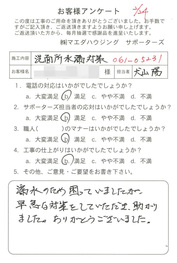 お客様アンケート
この度は工事のご用命を頂きありがとうございます。お手数で
すがご記入頂き、ご返送頂きますようお願い申し上げます。
ご返送頂いた方から、毎月抽選で感謝品を進呈いたします。
㈱マエダハウジング サポーターズ
工事名 洗面所水漏れ対策
お客様名 様 担当者
1. 電話の対応はいかがでしたでしょうか?
a. 大満足 b 満足 c. やや不満 d. 不満
2. サポーターズ担当者の対応はいかがでしたでしょうか?
a. 大満足 b 満足 c. やや不満 d. 不満
3. 職人( )のマナーはいかがでしたでしょうか?
a. 大満足 b 満足 c. やや不満 d. 不満
4. 工事の仕上がりはいかがでしたでしょうか?
a. 大満足 b 満足 c. やや不満 d. 不満
5. その他、ご意見・ご要望をお書き下さい。
漏水のため困っていましたが
早急な対策をしていただき、助かり
ました。ありがとうございました。